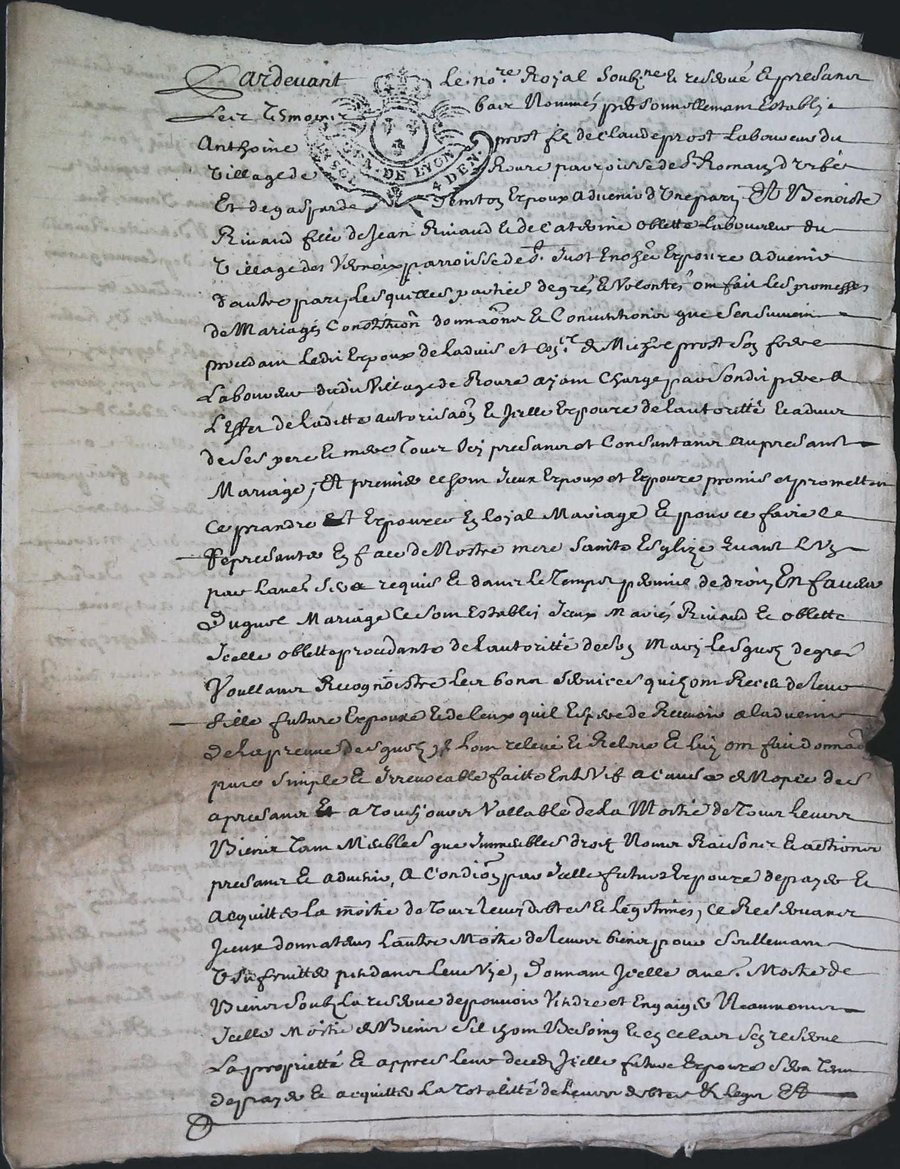 Pardevant le no.re Royal Soubz.ne Et reservé Et presans
Les Tesmoins bas Nommés personnellemant Establys
Anthoine prost fils de Claude prost Laboureur du
Village de Roure parroisse de St Romain D'Urfé
GEN. DE LYON 4 DEN
Et de gasparde Epoux advenir d'Une part Et Benoiste
Rinaud fille de Jean Rinaud Et de Catherine oblette Laboureur du
Village des parroisse de St Just En Espouze advenir
d'autre part, Lesquelles parties de gré Et Volontés ont fait Les promesses
de Mariages Constitution donnaons Et Conventions que Sensuivent
procedant Ledit Espoux de Ladvis et de prost Son frere
Laboureur dudit Village de Roure ayant Charge par Sondit pere a
L'Effet de Laditte autorisaon Et Jcelle Espouze de Lautoritté Et advis
de Ses pere Et mere Tous Icy presants et Consantants au presant
Mariage, Et premierement Jceux Espoux et Espouze promis et promettent
Ce prandre Et Espouzer En loyal Mariage Et pour ce faire Se
Representer En face de Nostre mere Sainte Esglize quant L'Un
par Lautre Sera requis Et dans Le Temps permis de droit, En faveur
Duquel Mariage Ce Sont Establis Jceux Mariés Rinaud Et oblette
Jcelle oblette procedante de Lautoritté de Son Mary Lesquels de gré
Voullants Recognoistre Les bons Services quils ont Receu de Leur
fille future Espouze Et de Ceux quil Espere de Recevoir a Ladvenir
de La preuve desquels Lont relevé Et Releve Et Luy ont fait donnaon
pure Simple Et Jrrevocable faitte Entre Vif a Cause de Nopces des
a presant Et a Tousjours Vallable de La Moitié de Tous Leurs
Biens Tant Meubles que Jmmeubles droits Noms Raisons Et actions
presants Et advenir, A Condition par Jcelle future Espouze de payer Et
acquitter La moitié de Tous Leurs debtes Et Legitimes, Ce Reservants
Jceux donnateurs Lautre Moitié de Leurs biens pour Seullement
Usufruitter pendant Leur Vie, Donnant Jcelle Moitié de
Biens Soubz La reserve de pouvoir Vendre et Engager Neanmoins
Jcelle Moitié de Biens Sil z'ont Besoing Et En ce Cas Sen reserve
La proprietté Et appres Leur decedz Jcelle future Espouze Sera Tenu
de payer Et acquitter La Totallitté de Leurs debtes Et Legs Et